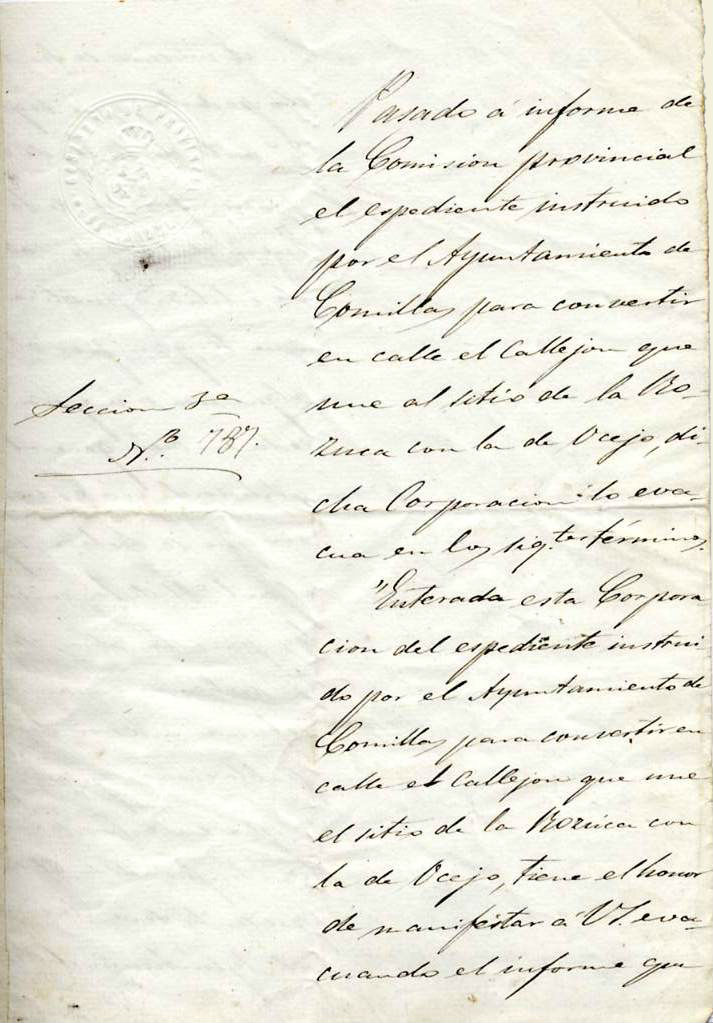 Seccion 3ª
N.º 787.
Pasado á informe de
la Comision provincial
el espediente instruido
por el Ayuntamiento de
Comillas para convertir
en calle el Callejon que
une al sitio de la Ro-
zuca con la de Ocejo, di-
cha Corporacion lo eva-
cua en los sig.tes términos.
"Enterada esta Corpora
cion del espediente instrui
do por el Ayuntamiento de
Comillas para convertir en
calle el Callejon que une
el sitio de la Rozuca con
la de Ocejo, tiene el honor
de manifestar á V.S. eva-
cuando el informe que